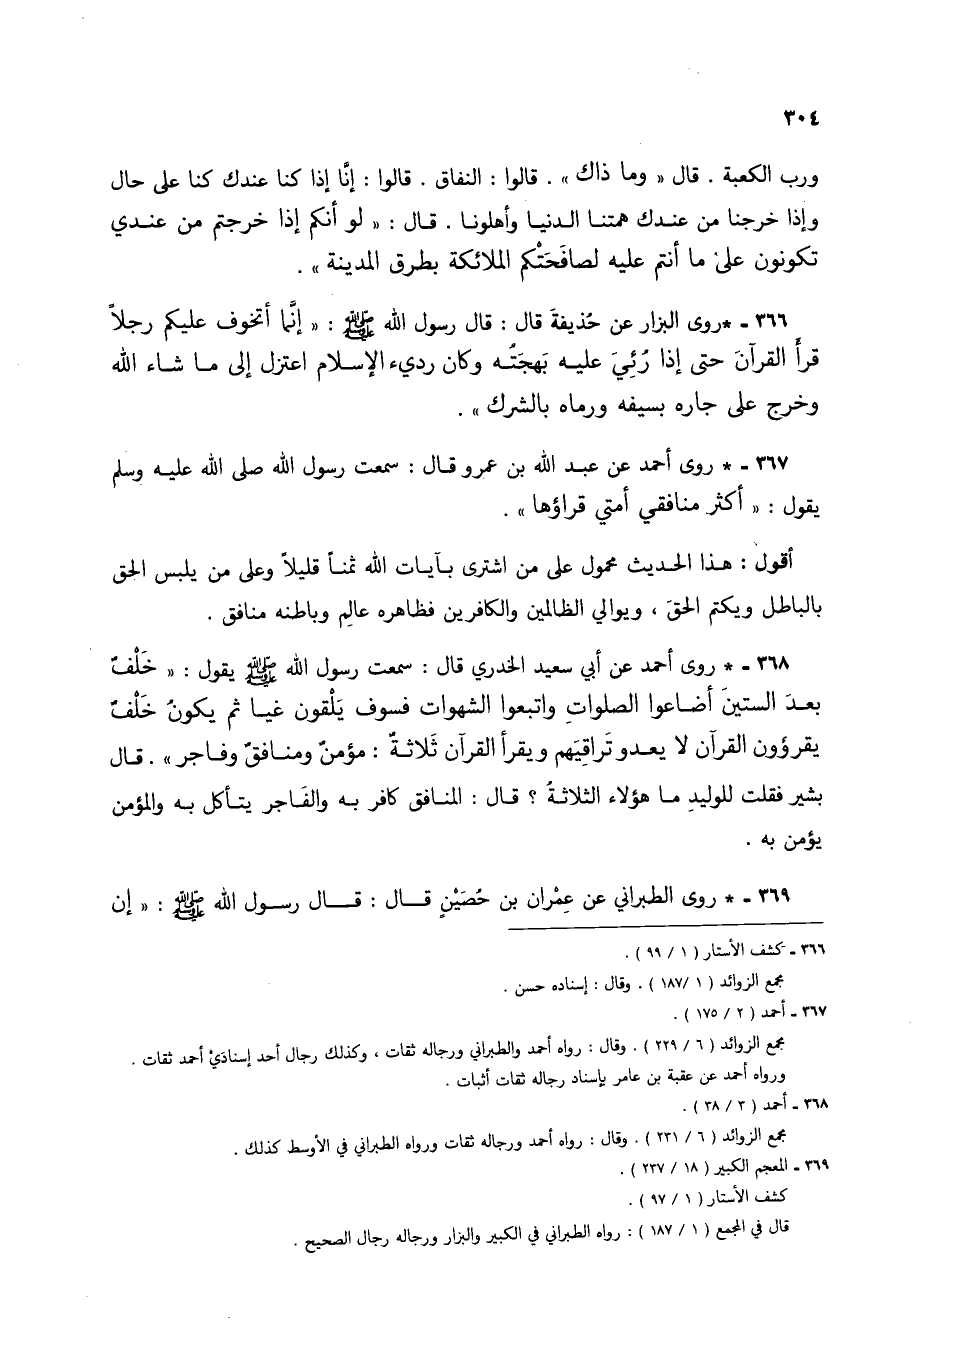 ٣٠٤
ورب الكعبة . قال « وما ذاك » . قالوا : النفاق . قالوا : إنَّا إذا كنا عندك كنا على حال
وإذا خرجنا من عندك همتنا الدنيا وأهلونا . قال : « لو أنكم إذا خرجتم من عندي
تكونون على ما أنتم عليه لصافَحَتْكم الملائكة بطرق المدينة » .
٣٦٦ - *روى البزار عن حُذيفةَ قال : قال رسول الله ﷺ : « إنَّما أتخوف عليكم رجلاً
قرأَ القرآنَ حتى إذا رُئِيَ عليه بَهجَتُه وكان رديء الإسلام اعتزل إلى ما شاء الله
وخرج على جاره بسيفه ورماه بالشرك » .
٣٦٧ - * روى أحمد عن عبد الله بن عمرو قال : سمعت رسول الله صلى الله عليه وسلم
يقول : « أكثر منافقي أمتي قراؤها » .
أقول : هذا الحديث محمول على من اشترى بآيات الله ثمناً قليلاً وعلى من يلبس الحق
بالباطل ويكتم الحقَ ، ويوالي الظالمين والكافرين فظاهره عالم وباطنه منافق .
٣٦٨ - * روى أحمد عن أبي سعيد الخدري قال : سمعت رسول الله ﷺ يقول : « خَلْفٌ
بعدَ الستينَ أضاعوا الصلواتِ واتبعوا الشهوات فسوف يَلْقون غيا ثم يكونُ خَلْفٌ
يقرؤون القرآن لا يعدو تَراقِيَهم ويقرأ القرآن ثَلاثةٌ : مؤمنٌ ومنافقٌ وفاجر » . قال
بشير فقلت للوليدِ ما هؤلاء الثلاثةُ ؟ قال : المنافق كافر به والفَاجر يتأكل به والمؤمن
يؤمن به .
٣٦٩ - * روى الطبراني عن عِمْران بن حُصَيْنٍ قال : قال رسول الله ﷺ : « إن
٣٦٦ - كشف الأستار ( ١ / ٩٩ ) .
مجمع الزوائد ( ١ /١٨٧ ) . وقال : إسناده حسن .
٣٦٧ - أحمد ( ٢ / ١٧٥ ) .
مجمع الزوائد ( ٦ / ٢٢٩ ) . وقال : رواه أحمد والطبراني ورجاله ثقات ، وكذلك رجال أحد إسنادَيْ أحمد ثقات .
ورواه أحمد عن عقبة بن عامر بإسناد رجاله ثقات أثبات .
٣٦٨ - أحمد ( ٣ / ٣٨ ) .
مجمع الزوائد ( ٦ / ٢٣١ ) . وقال : رواه أحمد ورجاله ثقات ورواه الطبراني في الأوسط كذلك .
٣٦٩ - المعجم الكبير ( ١٨ / ٢٣٧ ) .
كشف الأستار ( ١ / ٩٧ ) .
قال في المجمع ( ١ / ١٨٧ ) : رواه الطبراني في الكبير والبزار ورجاله رجال الصحيح .